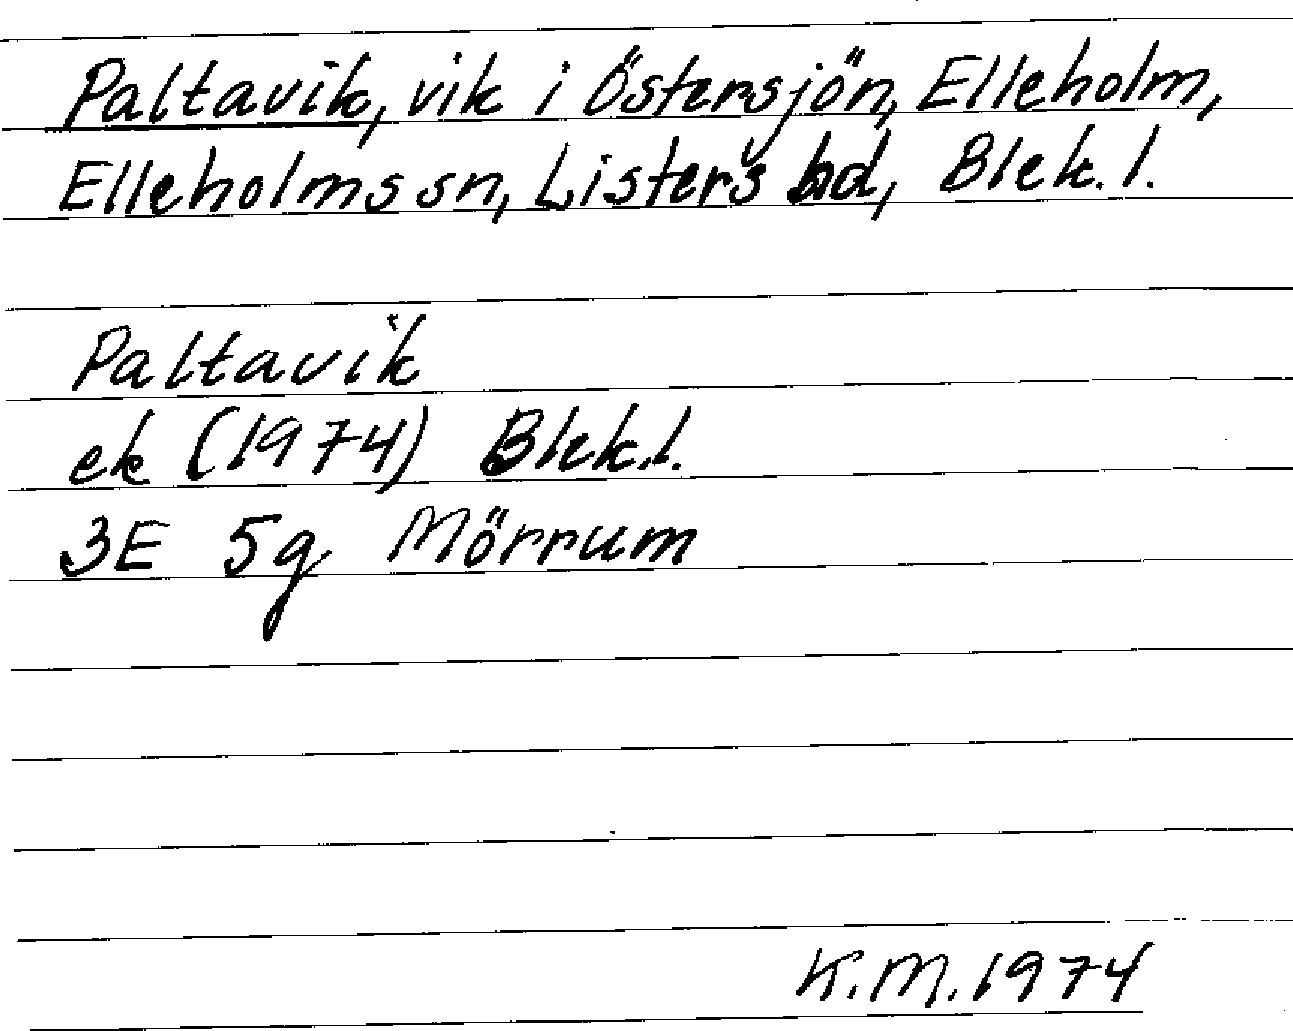 Paltavik, vik i Östersjön, Elleholm,
Elleholms sn, Listers hd, Blek. l.
Paltavik
ek (1974) Blek.l.
3E 5g Mörrum
K.M.1974